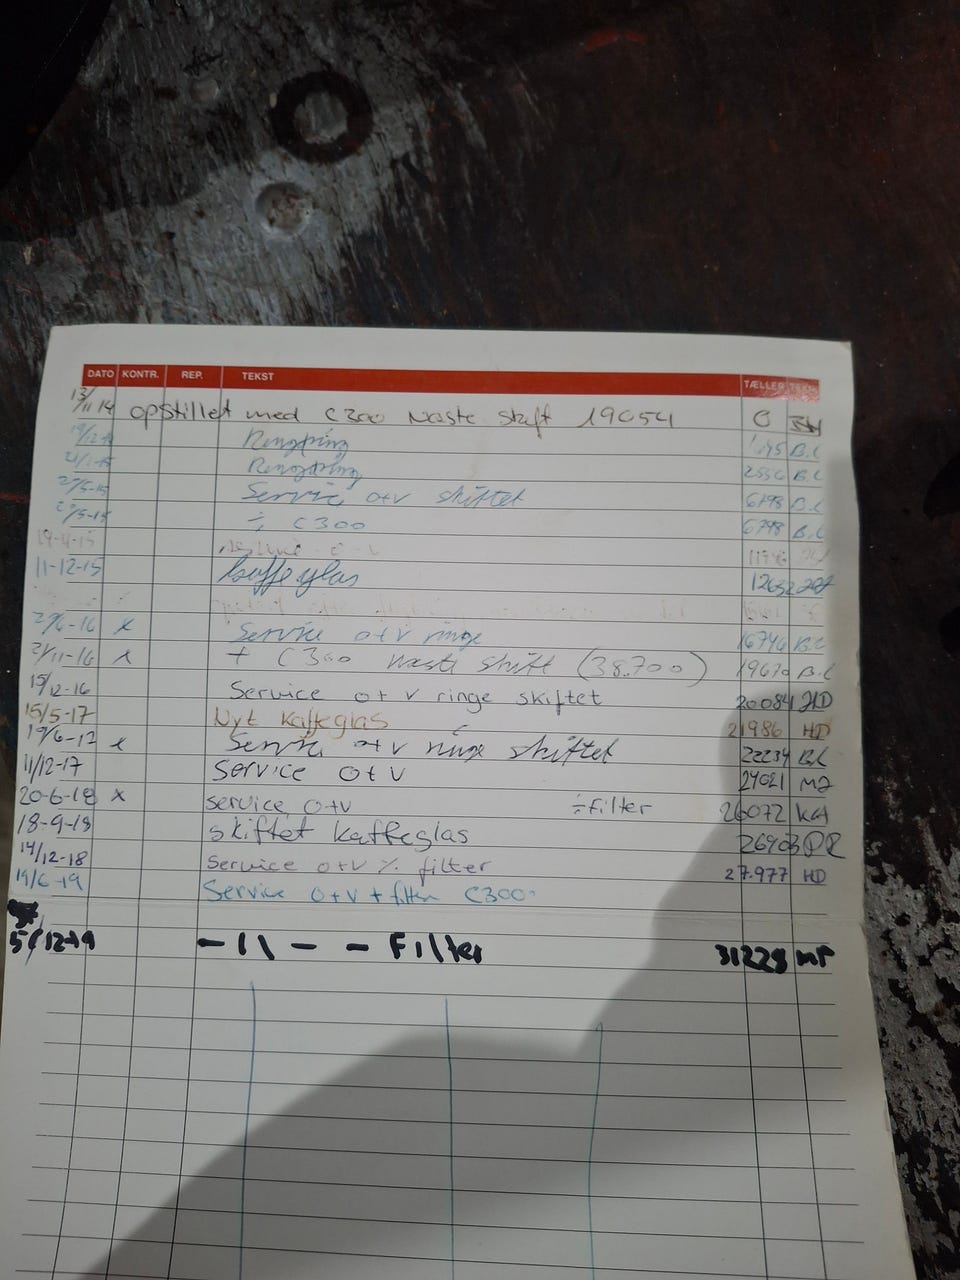 DATO KONTR. REP. TEKST TÆLLER TEKN.
13/11-14 opstillet med C300 Næste skift 19054 0
Rengøring B.C
Rengøring 2556 B.C
Service o+v skiftet 6798 B.C
÷ C300 6798 B.C
11-12-15 kaffeglas
x Service o+v ringe 16746 B.C
2/11-16 x + C300 næste skift (38.700) 19670 B.C
15/12-16 Service o+v ringe skiftet 20084 HD
15/5-17 Nyt kaffeglas 21986 HD
19/6-17 x Service o+v ringe skiftet 22234 B.C
11/12-17 Service o+v 24021 MJ
20-6-18 x service o+v ÷filter 26072 KA
18-9-18 skiftet kaffeglas 26903 PR
14/12-18 Service o+v % filter 27.977 HD
19/6-19 Service o+v + filter C300
5/12-19 - 11 - - Filter 31228 MP